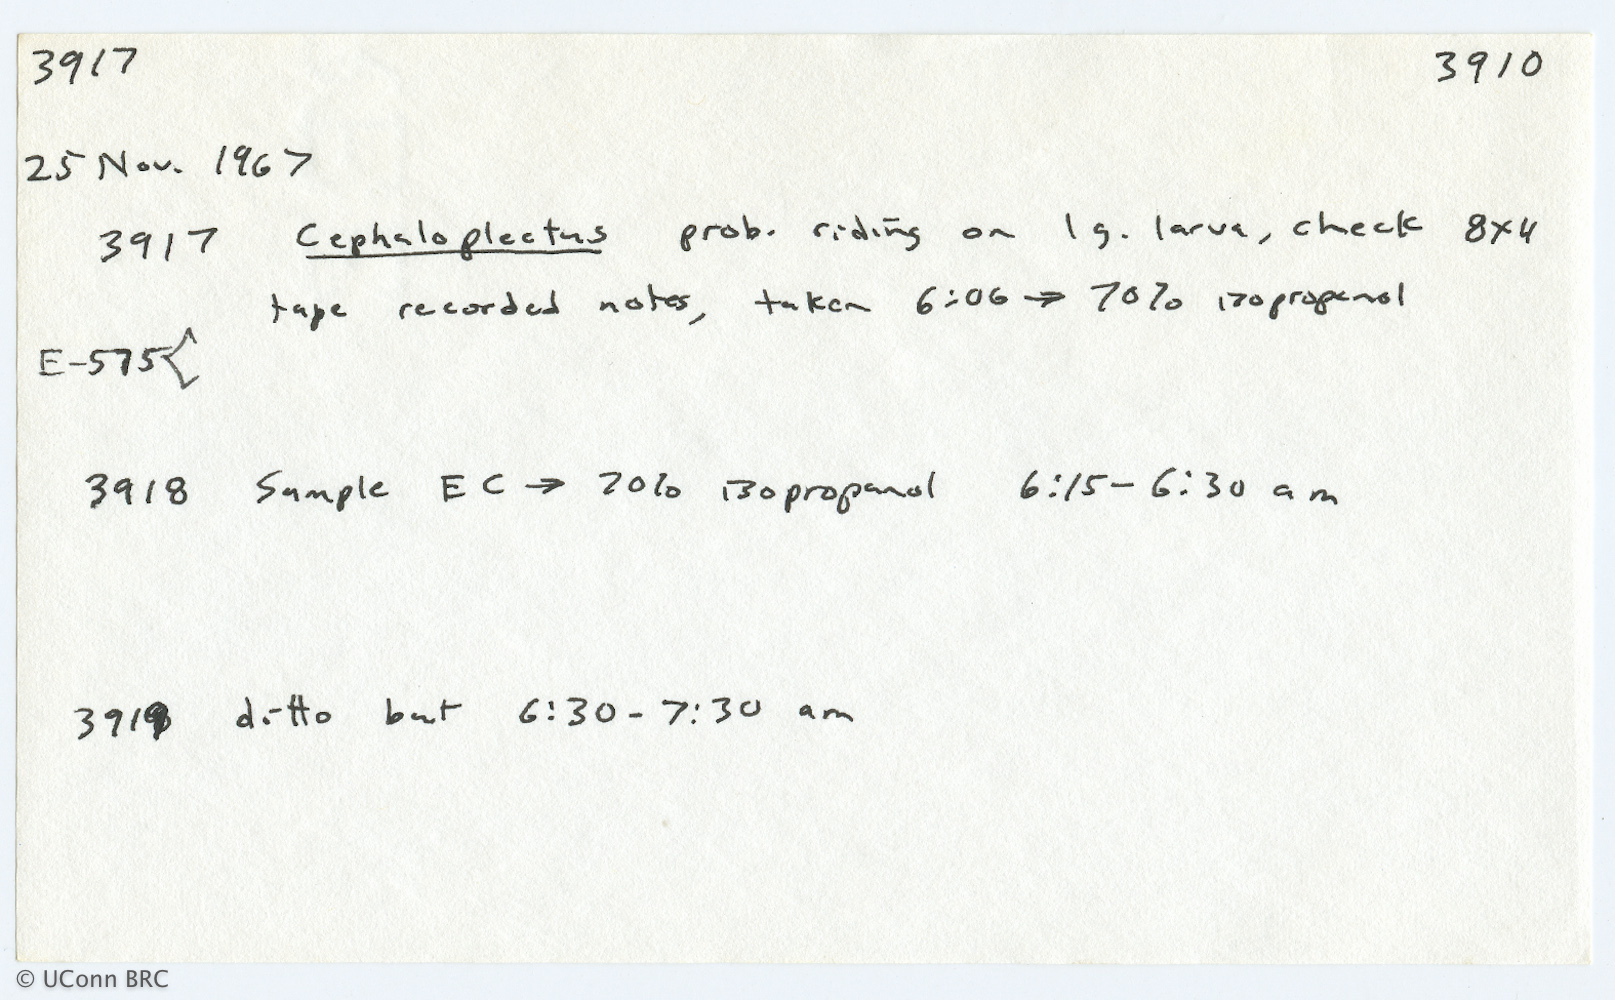 3917 3910
25 Nov. 1967
3917 Cephaloplectus prob. riding on lg. larva, check 8x4
tape recorded notes, taken 6:06 → 70% isopropanol
E-575
3918 Sample EC → 70% isopropanol 6:15 - 6:30 am
3919 ditto but 6:30 - 7:30 am
© UConn BRC